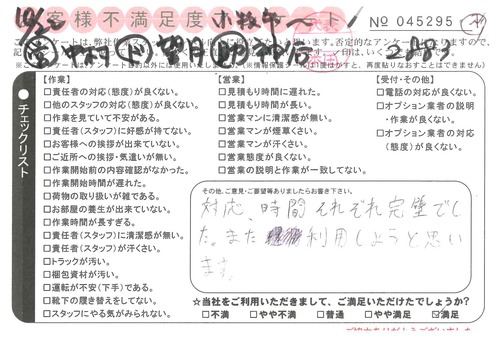 10/2
お客様不満足度アンケート 小牧市
No 045295
2名
(会) 中村 (ド) 望月 (助) 神谷
います。否定的なアンケートはなりますので、
【作業】
□責任者の対応(態度)が良くない。
□他のスタッフの対応(態度)が良くない。
□作業を見ていて不安がある。
□責任者(スタッフ)に好感が持てない。
□お客様への挨拶が出来ていない。
□ご近所への挨拶・気遣いが無い。
□作業開始前の内容確認がなかった。
□作業開始時間が遅れた。
□荷物の取り扱いが雑である。
□お部屋の養生が出来ていない。
□作業時間が長すぎる。
□責任者(スタッフ)に清潔感が無い。
□責任者(スタッフ)が汗くさい。
□トラックが汚い。
□梱包資材が汚い。
□運転が不安(下手)である。
□靴下の履き替えをしてない。
□スタッフにやる気がみられない。
【営業】
□見積もり時間に遅れた。
□見積もり時間が長い。
□営業マンに清潔感が無い。
□営業マンが煙草くさい。
□営業マンが汗くさい。
□営業態度が良くない。
□営業の説明と作業が一致してない。
【受付・その他】
□電話の対応が良くない。
□オプション業者の説明
・作業が良くない。
□オプション業者の対応
(態度)が良くない。
チェックリスト
その他、ご意見・ご要望等ありましたらお書き下さい。
対応、時間それぞれ完璧でし
た。また利用しようと思い
ます。
☆当社をご利用いただきまして、ご満足いただけたでしょうか?
□不満 □やや不満 □普通 □やや満足 ☑満足
ご協力ありがとうございました